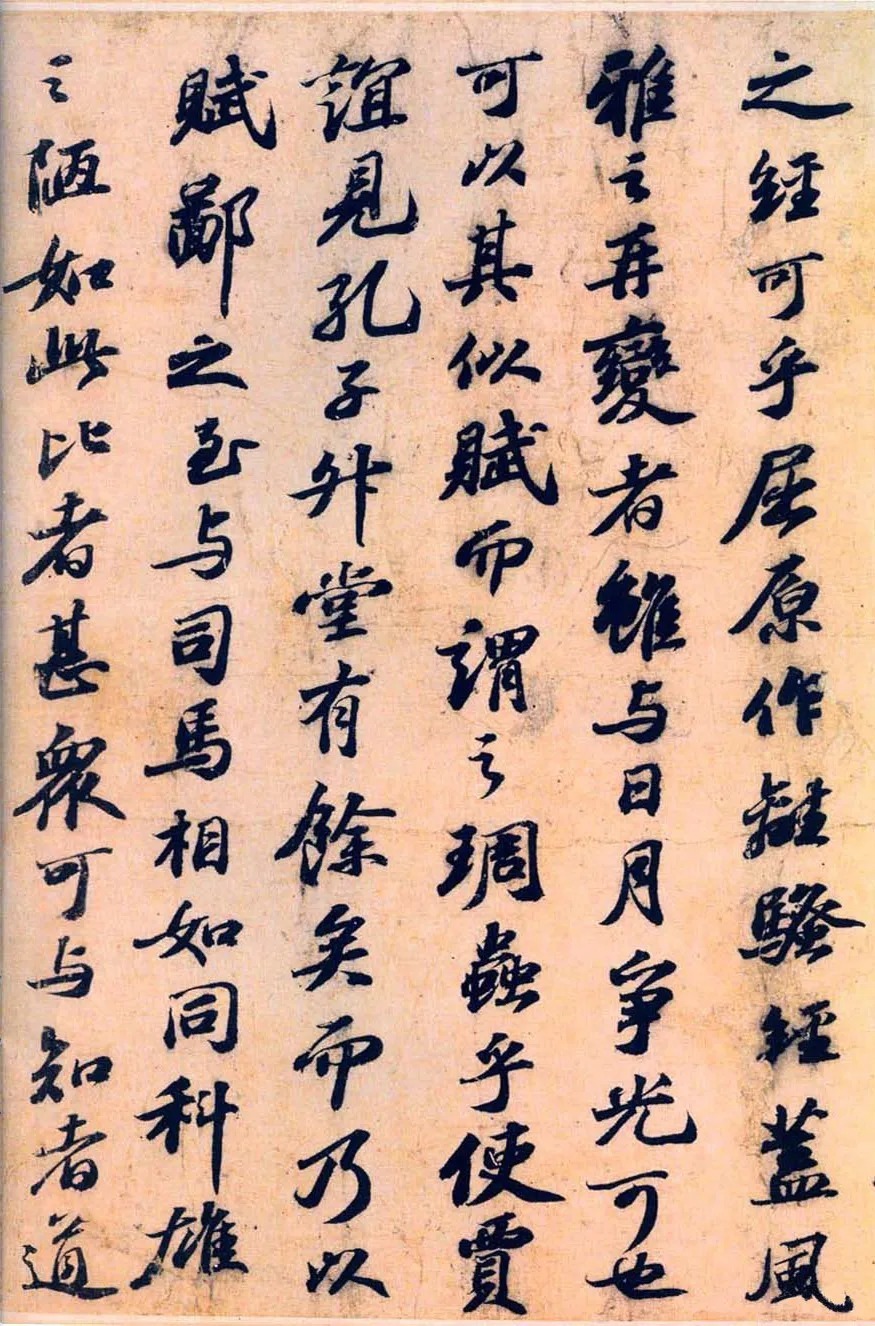 之經可乎屈原作離騷經蓋風
雅之再變者雖与日月爭光可也
可以其似賦而謂之琱蟲乎使賈
誼見孔子升堂有餘矣而乃以
賦鄙之至与司馬相如同科雄
之陋如此比者甚衆可与知者道